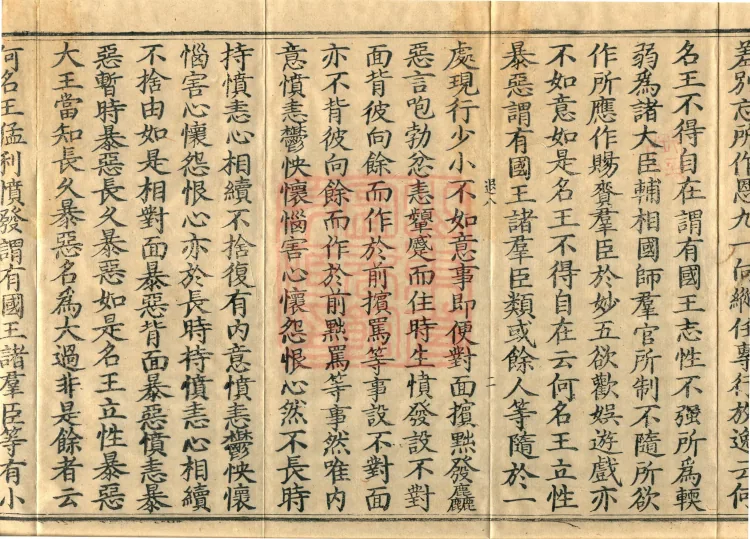 差別忘所作恩九一向縱任專行放逸云何
名王不得自在謂有國王志性不強所為輭
弱為諸大臣輔相國師羣官所制不隨所欲
作所應作賜賚羣臣於妙五欲歡娛遊戲亦
不如意如是名王不得自在云何名王立性
暴惡謂有國王諸羣臣類或餘人等隨於一
退八
二
處現行少小不如意事即便對面擯黜發麤
惡言咆勃忿恚顰蹙而住時生憤發設不對
面背彼向餘而作於前擯罵等事設不對面
亦不背彼向餘而作於前黜罵等事然唯內
意憤恚鬱怏懷惱害心懷怨恨心然不長時
持憤恚心相續不捨復有內意憤恚鬱怏懷
惱害心懷怨恨心亦於長時持憤恚心相續
不捨由如是相對面暴惡背面暴惡憤恚暴
惡暫時暴惡長久暴惡如是名王立性暴惡
大王當知長久暴惡名為大過非是餘者云
何名王猛利憤發謂有國王諸羣臣等有小